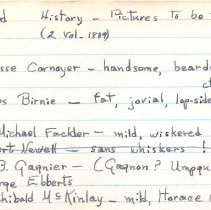 d History - Pictures to be
(2 Vol. 1889)
sse Cornoyer - handsome, beard
s Birnie - fat, jovial, lop-side
Michael Fackler - mild, wiskered
rt Newell - sans whiskers!
B. Gagnier - (Gagnon?
rge Ebberts
hibald McKinlay - mild, Horace